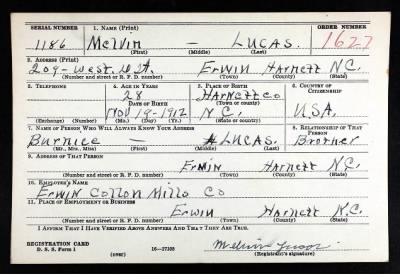 SERIAL NUMBER 1. NAME (Print) ORDER NUMBER
1186 Melvin — LUCAS. 1627
(First) (Middle) (Last)
2. ADDRESS (Print)
209- West. D St. Erwin Harnett N.C.
(Number and street or R. F. D. number) (Town) (County) (State)
3. TELEPHONE 4. AGE IN YEARS 5. PLACE OF BIRTH 6. COUNTRY OF CITIZENSHIP
28 HARNETT Co
DATE OF BIRTH (Town or county)
Nov 19-1912 N.C. U.S.A.
(Exchange) (Number) (Mo.) (Day) (Yr.) (State or country)
7. NAME OF PERSON WHO WILL ALWAYS KNOW YOUR ADDRESS 8. RELATIONSHIP OF THAT PERSON
Burnice — LUCAS. Brother
(Mr., Mrs., Miss) (First) (Middle) (Last)
9. ADDRESS OF THAT PERSON
Erwin Harnett N.C.
(Number and street or R. F. D. number) (Town) (County) (State)
10. EMPLOYER'S NAME
Erwin Cotton Mills Co
11. PLACE OF EMPLOYMENT OR BUSINESS
Erwin Harnett N.C.
(Number and street or R. F. D. number) (Town) (County) (State)
I AFFIRM THAT I HAVE VERIFIED ABOVE ANSWERS AND THAT THEY ARE TRUE.
REGISTRATION CARD
D. S. S. Form 1 (over) 16—17105 Melvin Lucas
(Registrant's signature)